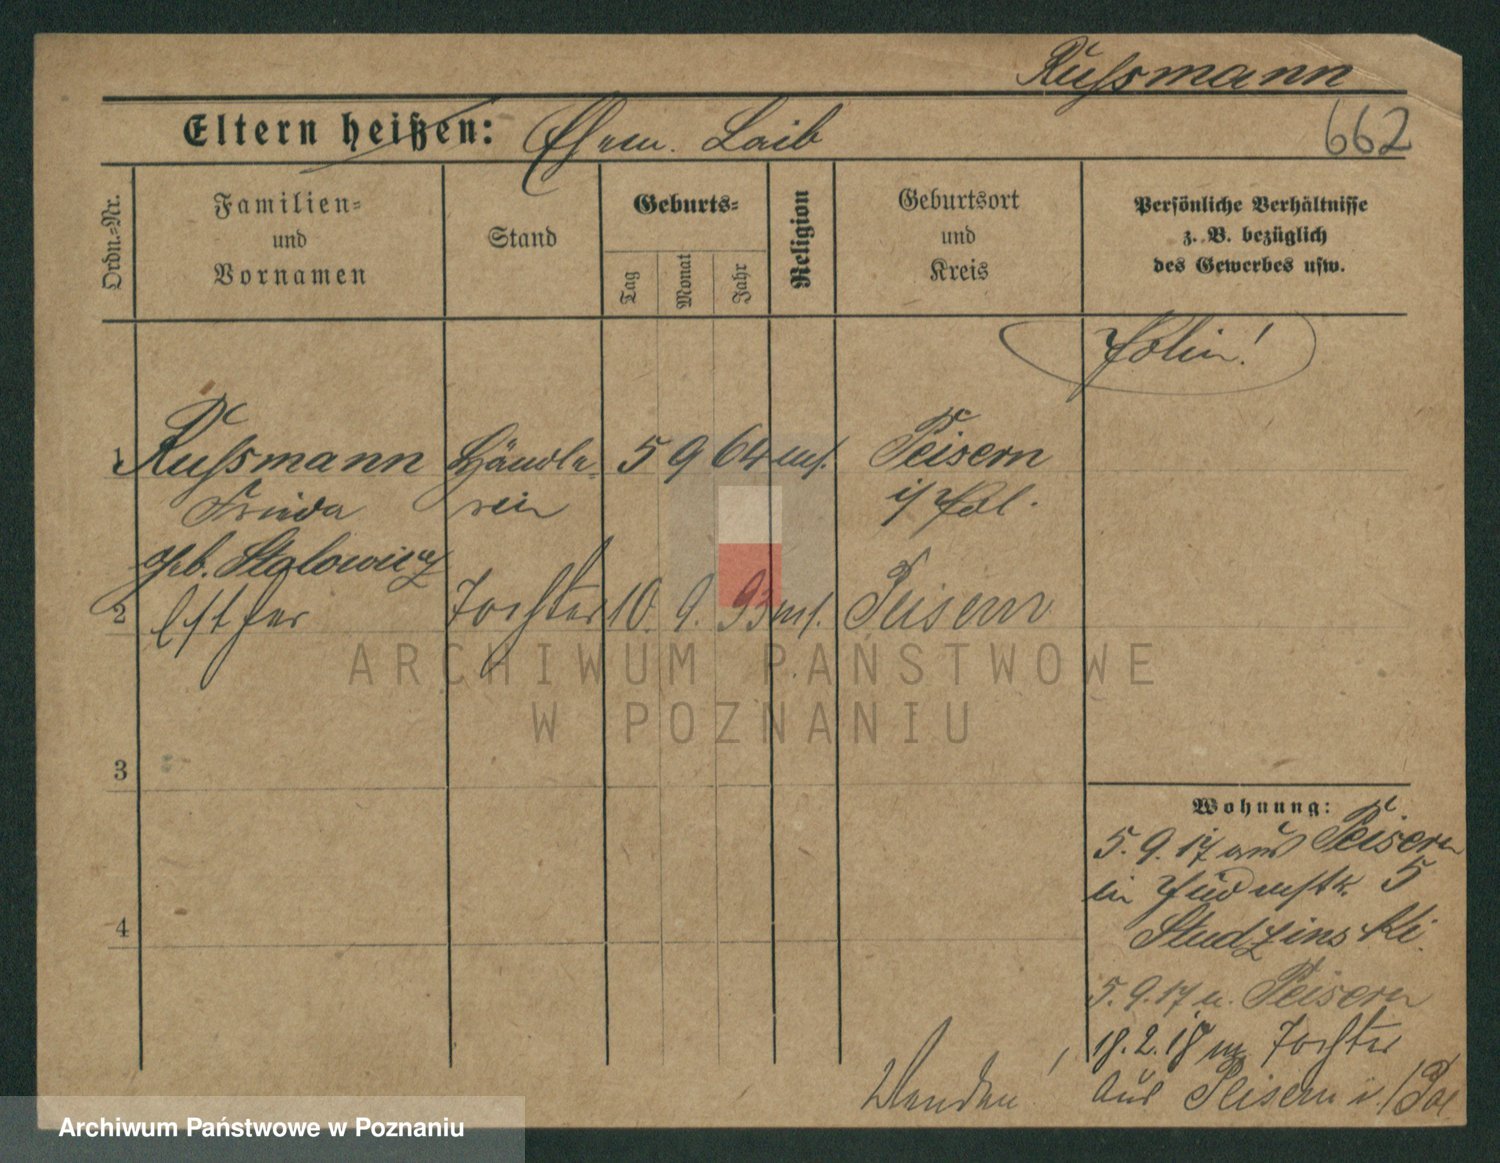 Russmann
Eltern heißen: Ehem. Laib
662
Ordn.-Nr.
Familien-
und
Vornamen
Stand
Geburts-
Tag
Monat
Jahr
Religion
Geburtsort
und
Kreis
Persönliche Verhältnisse
z. B. bezüglich
des Gewerbes usw.
Polin!
1 Russmann Händle- 5 9 64 mos. Peisern
Frieda rin i/ Pol.
geb. Stolowicz
2 Esther Tochter 10. 9. 93 mos. Peisern
3
4
Wohnung:
5. 9. 17 aus Peisern
in 5
Studzinski.
5. 9. 17 n. Peisern
18. 2. 18 m Tochter
aus Peisern i/Pol
Wenden!
ARCHIWUM PAŃSTWOWE
W POZNANIU
Archiwum Państwowe w Poznaniu